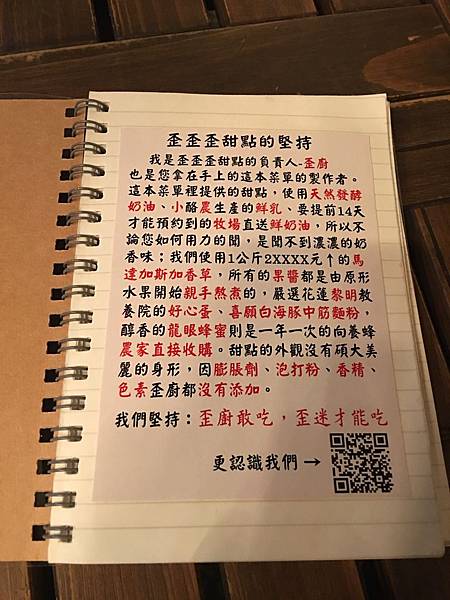 歪歪歪甜點的堅持
我是歪歪歪甜點的負責人-歪廚
也是您拿在手上的這本菜單的製作者。
這本菜單裡提供的甜點，使用天然發酵
奶油、小酪農生產的鮮乳、要提前14天
才能預約到的牧場直送鮮奶油，所以不
論您如何用力的聞，是聞不到濃濃的奶
香味；我們使用1公斤2XXXX元↑的馬
達加斯加香草，所有的果醬都是由原形
水果開始親手熬煮的，嚴選花蓮黎明教
養院的好心蛋、喜願白海豚中筋麵粉，
醇香的龍眼蜂蜜則是一年一次的向養蜂
農家直接收購。甜點的外觀沒有碩大美
麗的身形，因膨脹劑、泡打粉、香精、
色素歪廚都沒有添加。
我們堅持：歪廚敢吃，歪迷才能吃
更認識我們→